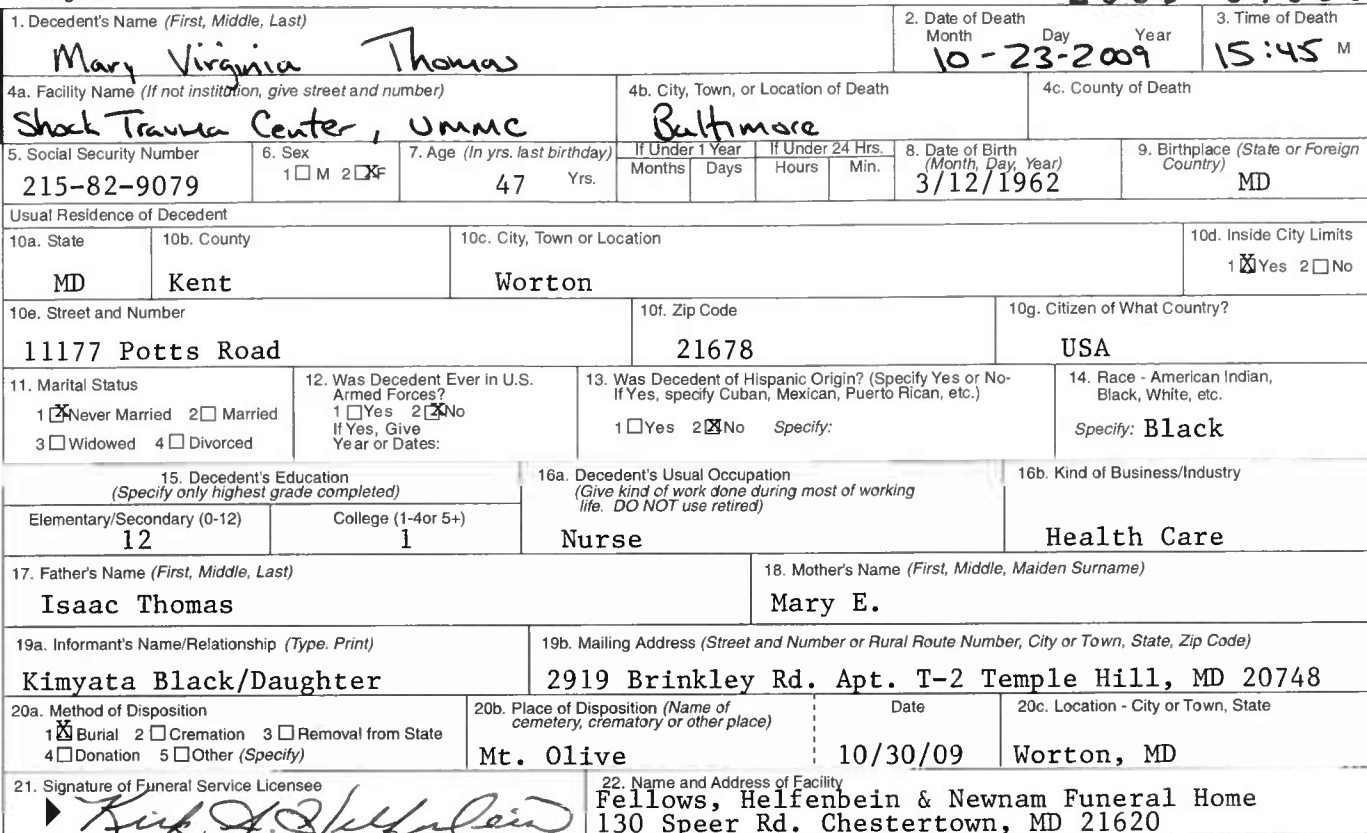 1. Decedent's Name (First, Middle, Last)
Mary Virginia Thomas
2. Date of Death
Month Day Year
10-23-2009
3. Time of Death
15:45 M
4a. Facility Name (If not institution, give street and number)
Shock Trauma Center, UMMC
4b. City, Town, or Location of Death
Baltimore
4c. County of Death
5. Social Security Number
215-82-9079
6. Sex
1 ☐ M 2 ☒ F
7. Age (In yrs. last birthday)
47 Yrs.
If Under 1 Year
Months Days
If Under 24 Hrs.
Hours Min.
8. Date of Birth
(Month, Day, Year)
3/12/1962
9. Birthplace (State or Foreign
Country)
MD
Usual Residence of Decedent
10a. State
MD
10b. County
Kent
10c. City, Town or Location
Worton
10d. Inside City Limits
1 ☒ Yes 2 ☐ No
10e. Street and Number
11177 Potts Road
10f. Zip Code
21678
10g. Citizen of What Country?
USA
11. Marital Status
1 ☒ Never Married 2 ☐ Married
3 ☐ Widowed 4 ☐ Divorced
12. Was Decedent Ever in U.S.
Armed Forces?
1 ☐ Yes 2 ☒ No
If Yes, Give
Year or Dates:
13. Was Decedent of Hispanic Origin? (Specify Yes or No-
If Yes, specify Cuban, Mexican, Puerto Rican, etc.)
1 ☐ Yes 2 ☒ No Specify:
14. Race - American Indian,
Black, White, etc.
Specify: Black
15. Decedent's Education
(Specify only highest grade completed)
Elementary/Secondary (0-12)
12
College (1-4or 5+)
1
16a. Decedent's Usual Occupation
(Give kind of work done during most of working
life. DO NOT use retired)
Nurse
16b. Kind of Business/Industry
Health Care
17. Father's Name (First, Middle, Last)
Isaac Thomas
18. Mother's Name (First, Middle, Maiden Surname)
Mary E.
19a. Informant's Name/Relationship (Type. Print)
Kimyata Black/Daughter
19b. Mailing Address (Street and Number or Rural Route Number, City or Town, State, Zip Code)
2919 Brinkley Rd. Apt. T-2 Temple Hill, MD 20748
20a. Method of Disposition
1 ☒ Burial 2 ☐ Cremation 3 ☐ Removal from State
4 ☐ Donation 5 ☐ Other (Specify)
20b. Place of Disposition (Name of
cemetery, crematory or other place)
Mt. Olive
Date
10/30/09
20c. Location - City or Town, State
Worton, MD
21. Signature of Funeral Service Licensee
22. Name and Address of Facility
Fellows, Helfenbein & Newnam Funeral Home
130 Speer Rd. Chestertown, MD 21620